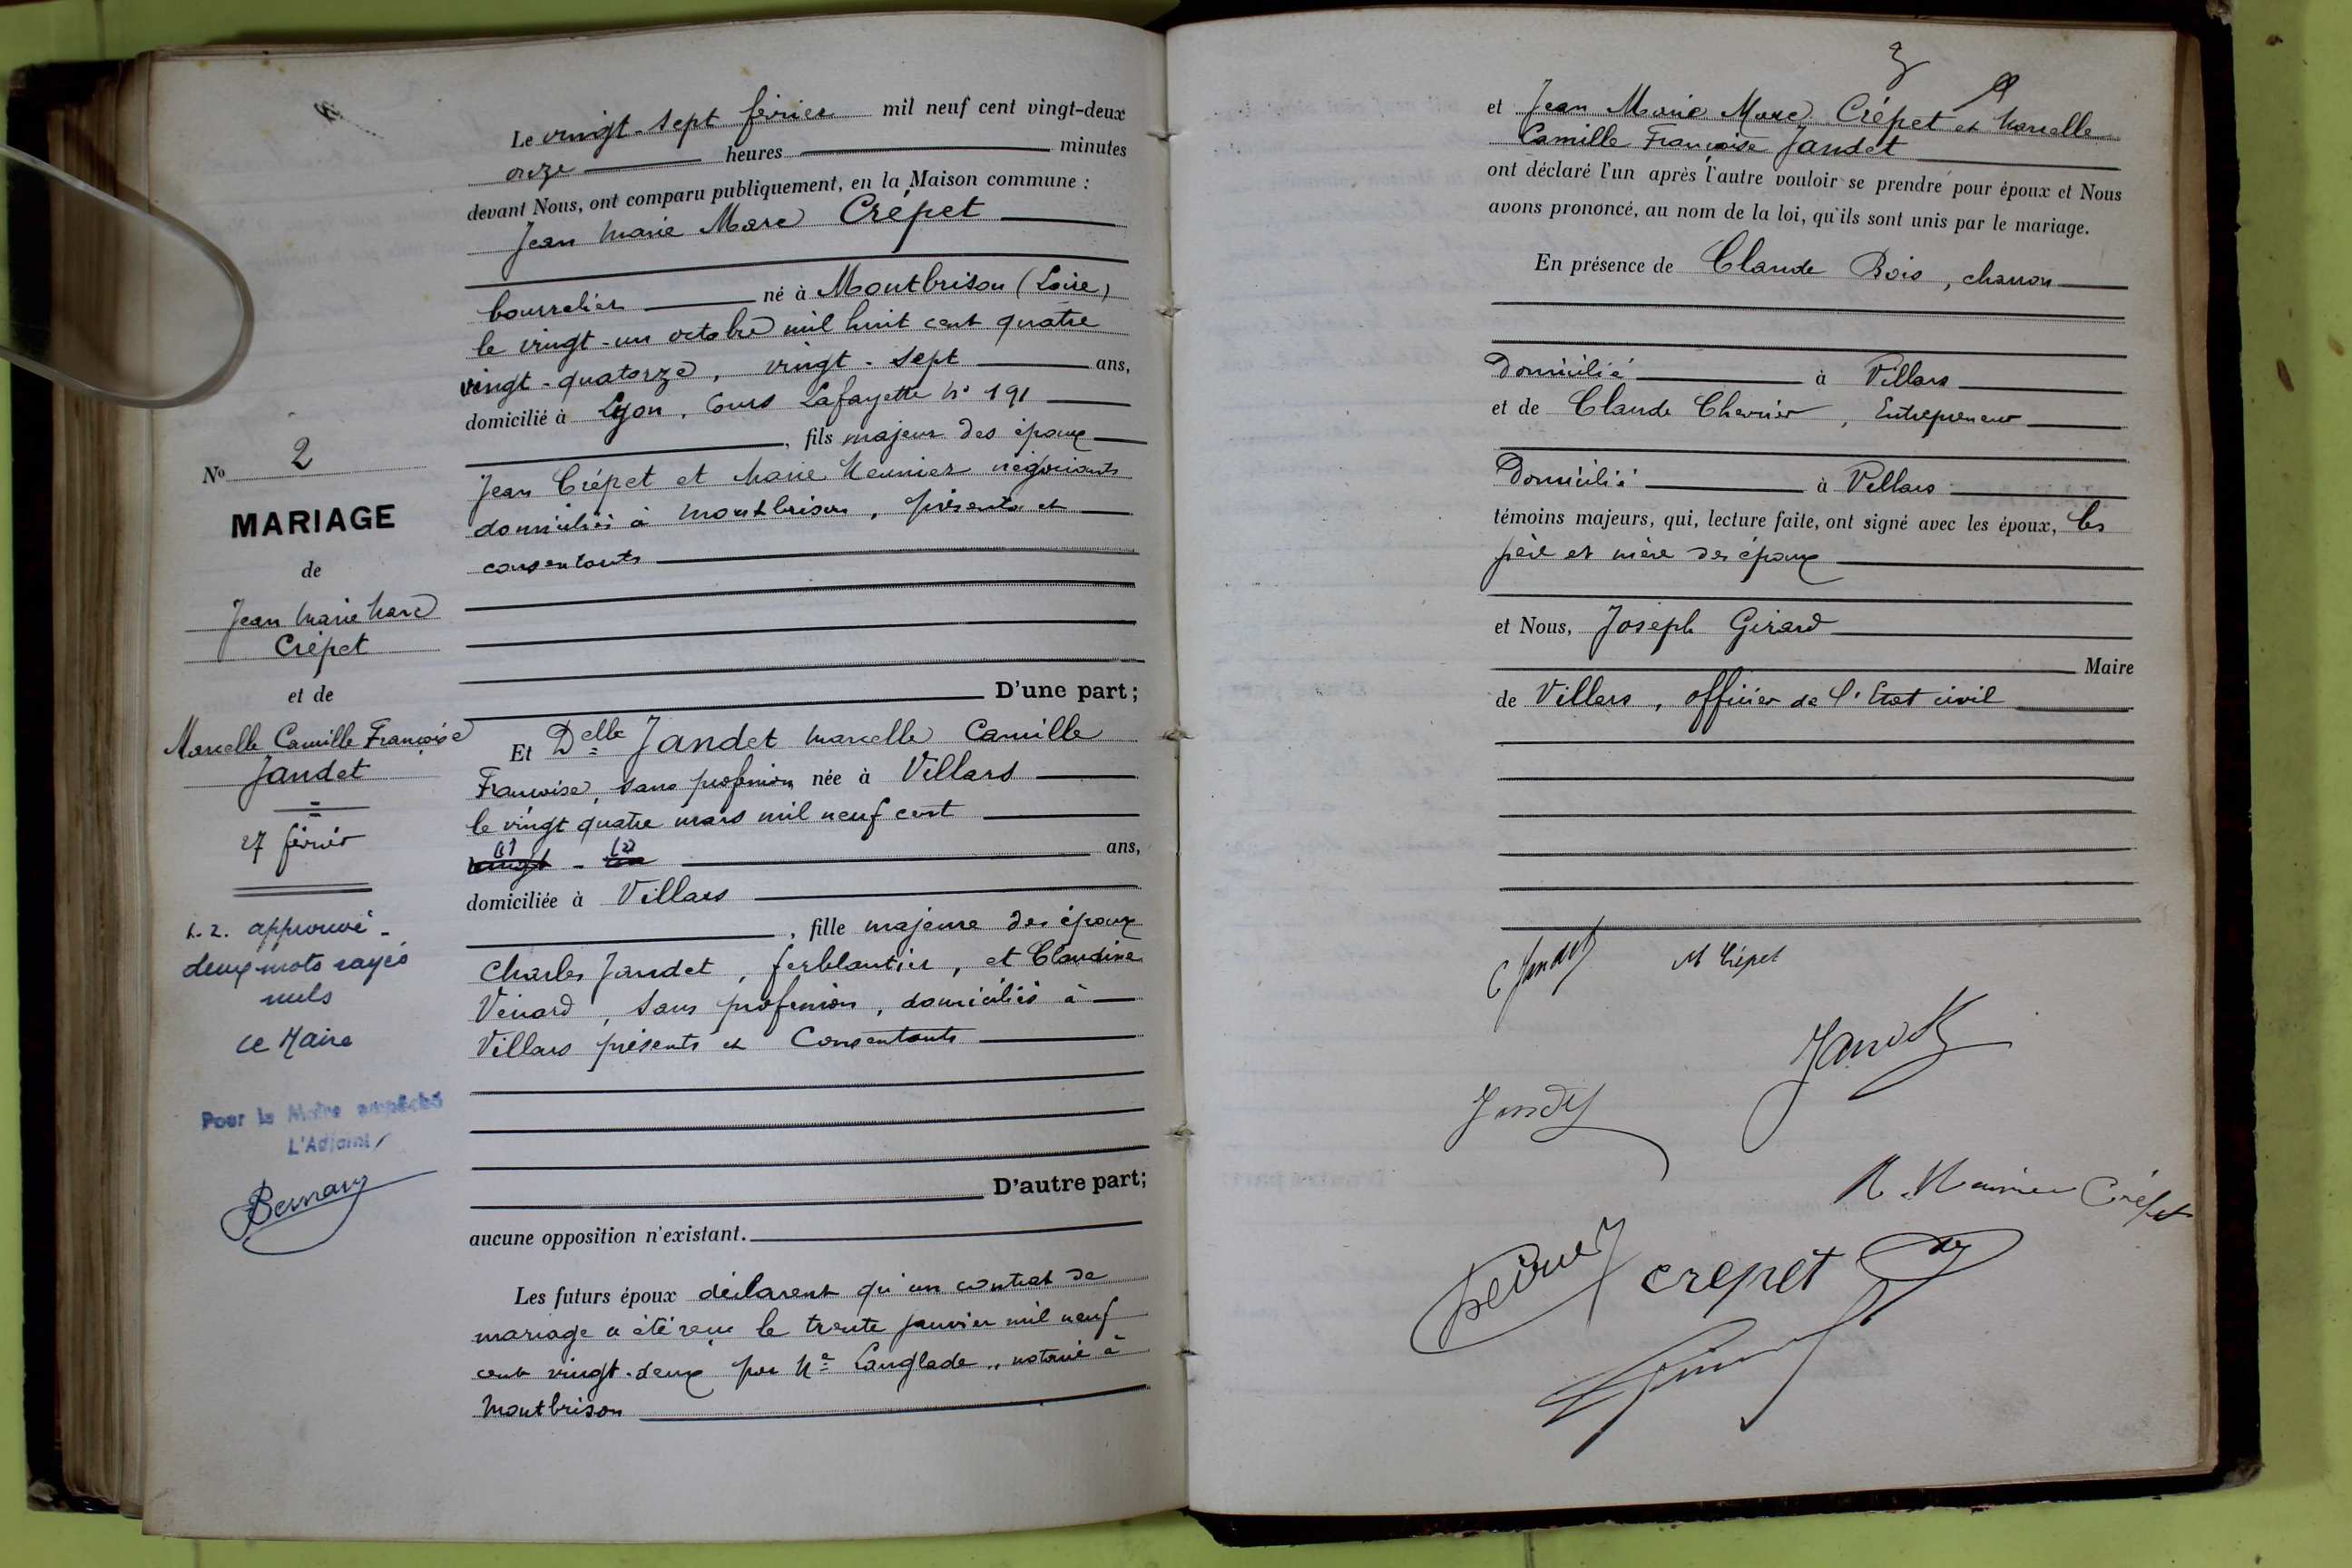 Le vingt-sept février mil neuf cent vingt-deux
onze heures minutes
devant Nous, ont comparu publiquement, en la Maison commune :
Jean Marie Marc Crépet
bourrelier né à Montbrison (Loire)
le vingt-un octobre mil huit cent quatre
vingt-quatorze, vingt-sept ans,
domicilié à Lyon, Cours Lafayette n° 191
, fils majeur des époux
Jean Crépet et Marie Meunier négociants
domiciliés à Montbrison, présents et
consentants
D'une part;
Et Delle Jandet Marcelle Camille
Françoise, sans profession née à Villars
le vingt quatre mars mil neuf cent
(1) (2)
vingt - un ans,
domiciliée à Villars
, fille majeure des époux
Charles Jandet, ferblantier, et Claudine
Venard, sans profession, domiciliés à
Villars présents et Consentants
D'autre part;
aucune opposition n'existant.
Les futurs époux déclarent qu'un contrat de
mariage a été reçu le trente janvier mil neuf
cent vingt-deux par Me Langlade, notaire à
Montbrison
No 2
MARIAGE
de
Jean Marie Marc
Crépet
et de
Marcelle Camille Françoise
Jandet
27 février
1.2. approuvé -
deux mots rayés
nuls
Le Maire
Pour le Maire empêché
L'Adjoint
3
et Jean Marie Marc Crépet et Marcelle
Camille Françoise Jandet
ont déclaré l'un après l'autre vouloir se prendre pour époux et Nous
avons prononcé, au nom de la loi, qu'ils sont unis par le mariage.
En présence de Claude Bois, charron
Domicilié à Villars
et de Claude Cherrier, Entrepreneur
Domicilié à Villars
témoins majeurs, qui, lecture faite, ont signé avec les époux, les
père et mère des époux
et Nous, Joseph Girard
Maire
de Villars, officier de l'Etat civil
C Jandet
M Crépet
Jandet
Jandet
M. Meunier Crépet
crepet